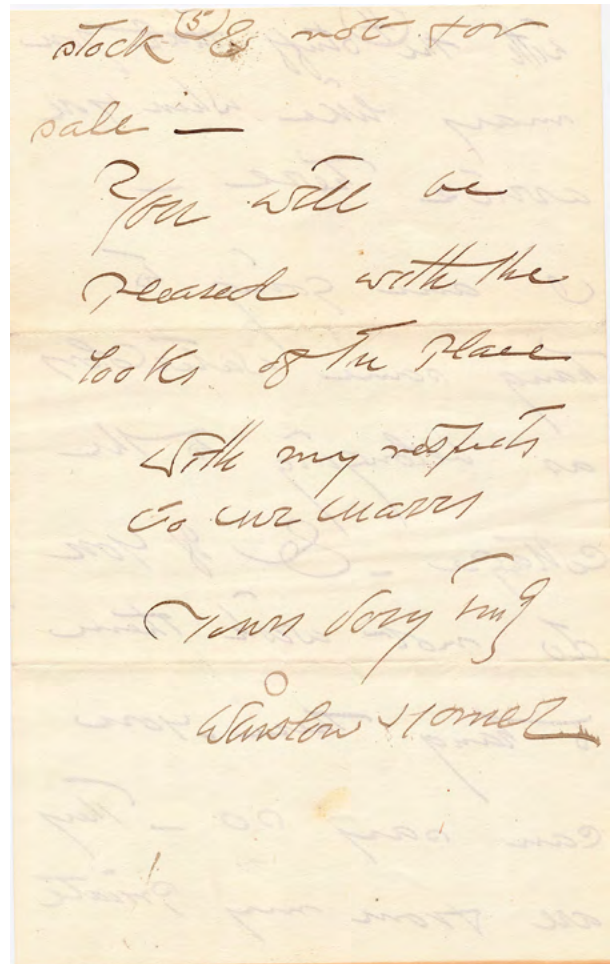 (5)
stock & not for
sale —
You will be
pleased with the
looks of the place
With my respects
to
Yours very truly
Winslow Homer